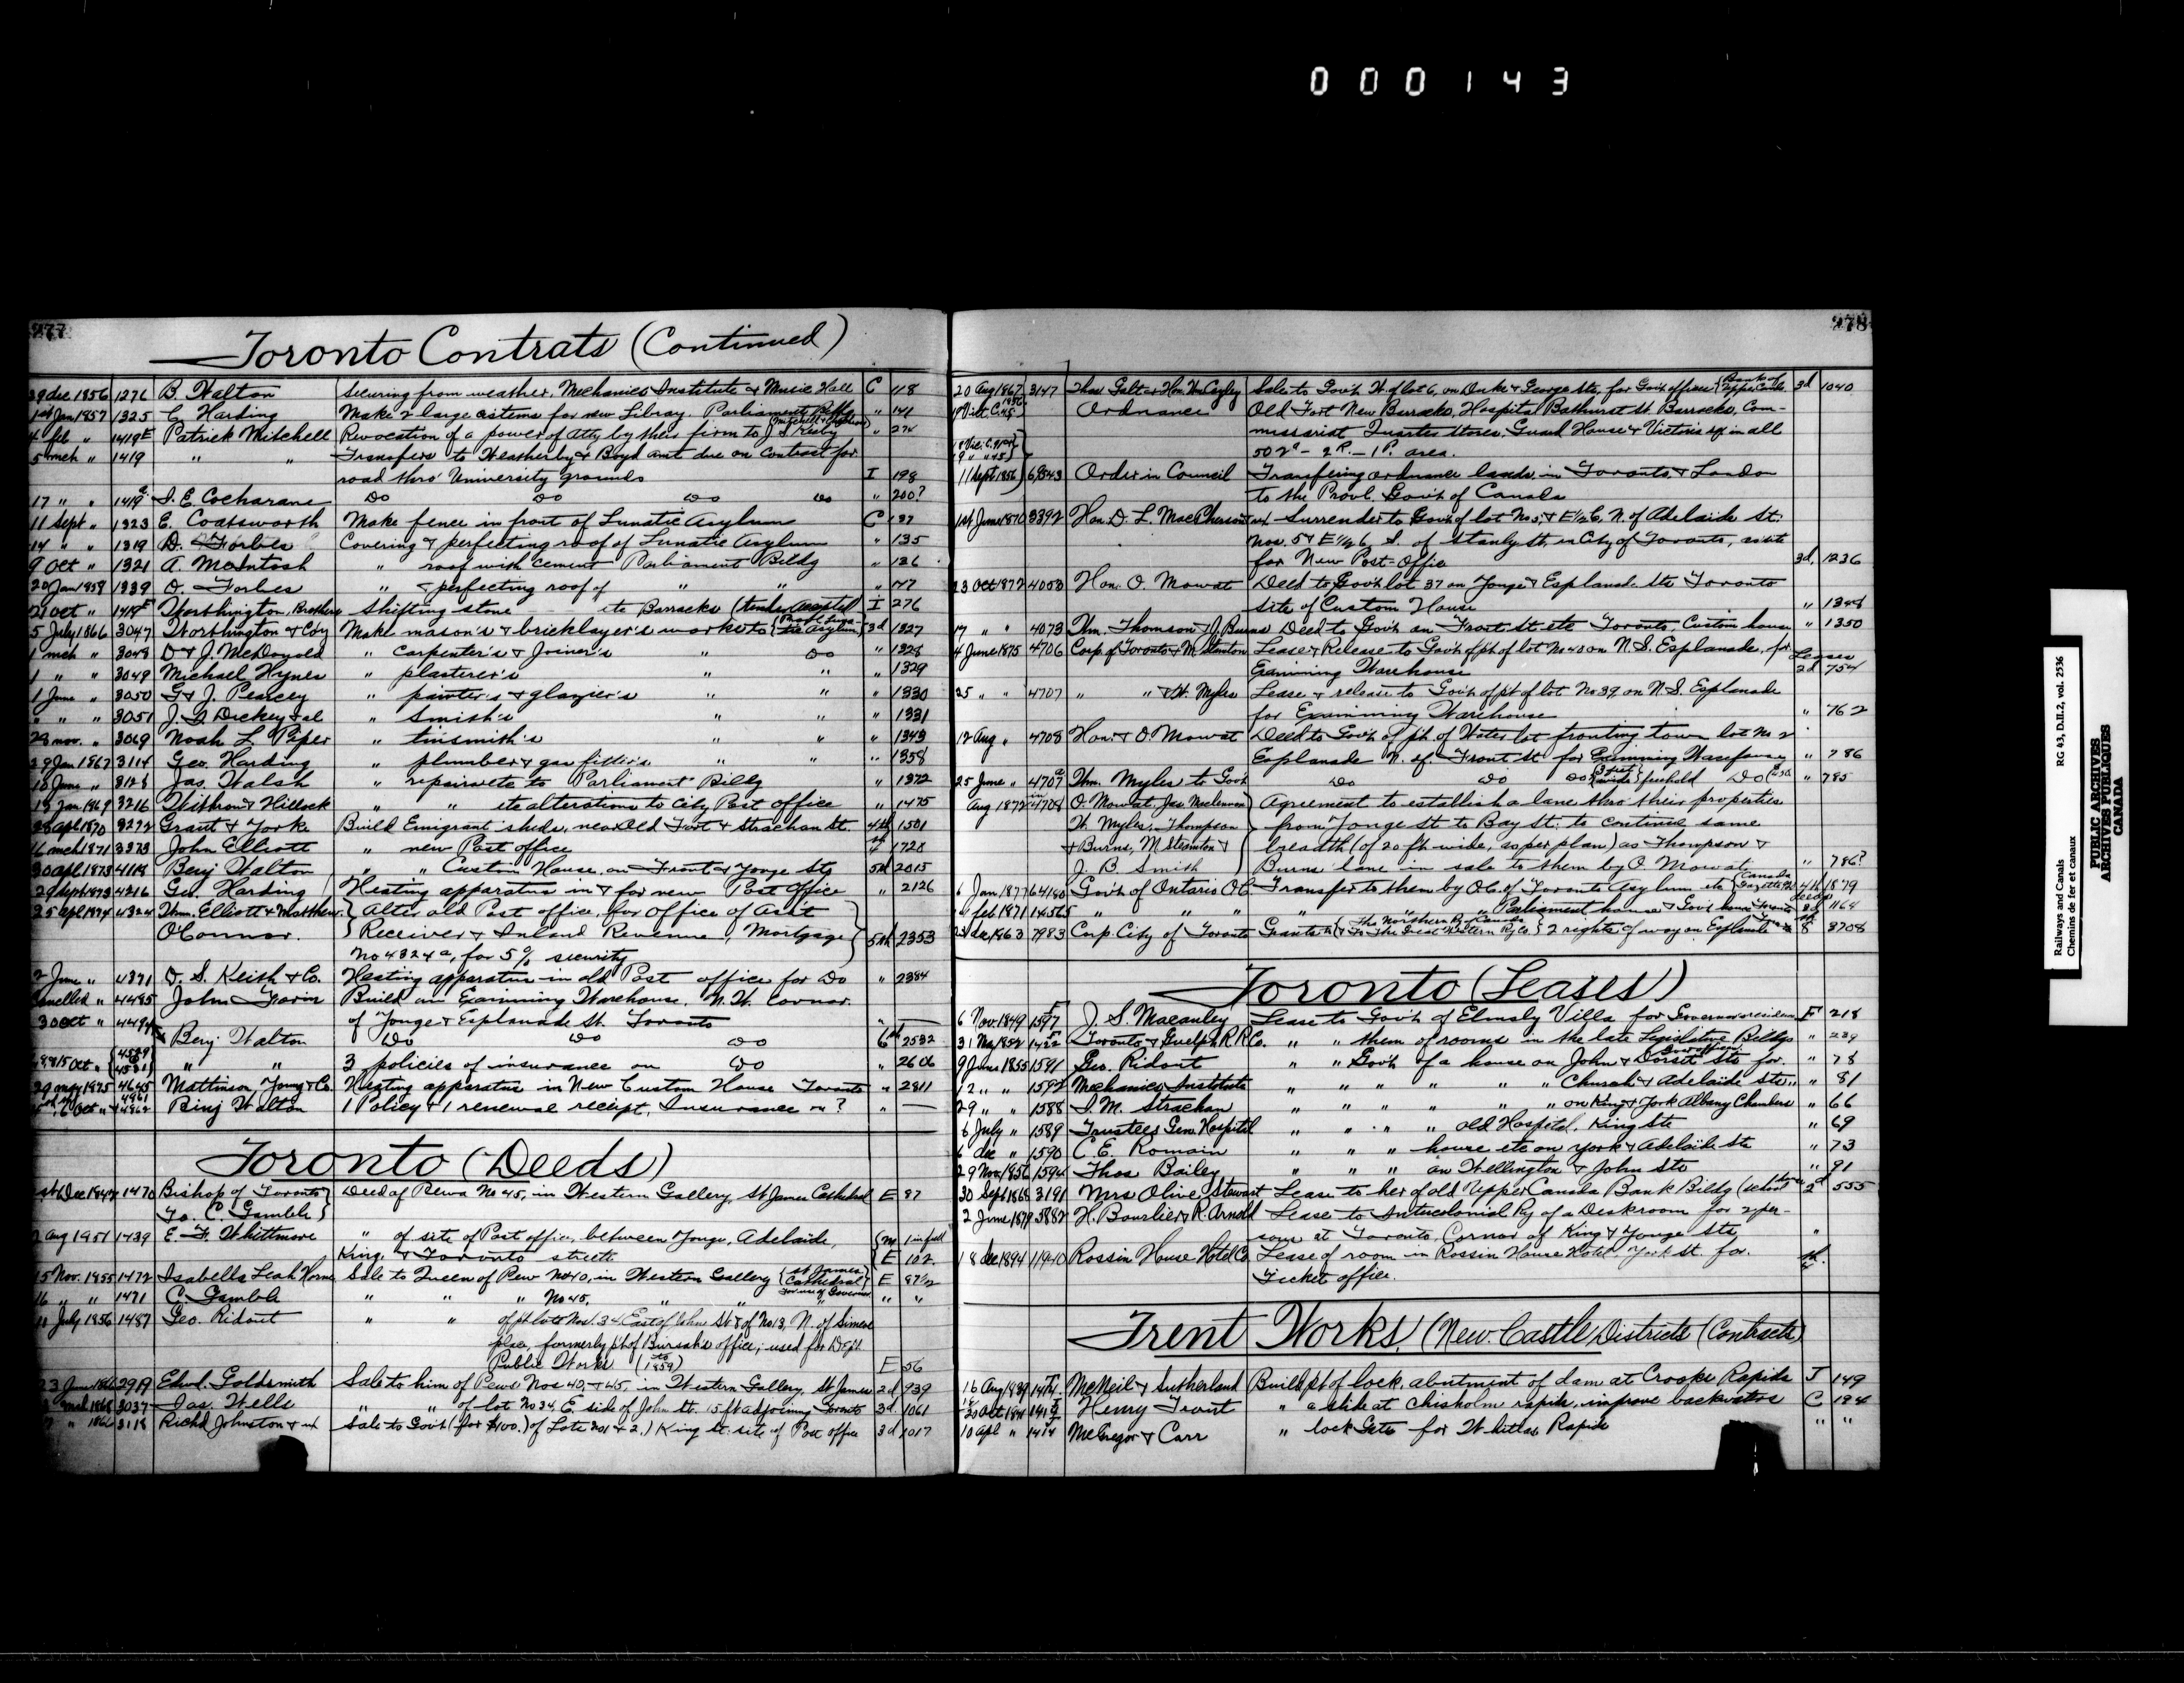 000143
277
Toronto Contrats (Continued)
29 dec 1856 1276 B. Walton Securing from weather, Mechanics Institute & Music Hall C 118
1st Jan 1857 1325 C. Harding Make 2 large cisterns for new Libray. Parliament Bldg " 141
4 feb " 1419E Patrick Mitchell Revocation of a power of atty by their firm to J. S. " 274
5 mch " 1419 " " Transfers to Weatherby & Boyd amt due on Contract for
road thro' University grounds I 198
17 " " 1419 S. E. Cocharane Do Do Do Do " 200?
11 Sept " 1323 E. Coatsworth Make fence in front of Lunatic Asylum C 137
14 " " 1319 D. Forbes Covering & perfecting roof of Lunatic Asylum " 135
9 Oct " 1321 A. McIntosh " roof with cement Parliament Bldg " 136
20 Jan 1858 1339 D. Forbes " & perfecting roof of " " " 147
21 oct " 1419F Worthington, Brothers Shifting stone etc Barracks (tender Accepted I 276
5 July 1866 3047 Worthington & Coy Make mason's & bricklayer's works to Asylum 3d 1327
1 mch " 3048 D & J. McDonald " Carpenter's & Joiner's " Do " 1328
1 " " 3049 Michael Hynes " plasterer's " " " 1329
1 June " 3050 G & J. Pearcey " painter's & glazier's " " " 1330
" " " 3051 J. Dickey & al " Smith's " " " 1331
29 nov. " 3069 Noah L. Piper " tinsmith's " " " 1343
29 Jan 1867 3114 Geo. Harding " plumber & gas fitter's " " " 1358
18 June " 3128 Jas. Walsh " repairs etc to Parliament Bldg " 1372
13 Jan 1869 3216 Withrow & Hillock " " etc alterations to City Post office " 1475
apl 1870 3272 Grant & Yorke Build Emigrant sheds, near Old Fort & Strachan St. 4th 1501
16 mch 1871 3373 John Elliott " new Post office 1728
30 apl 1873 4118 Benj Walton " " Custom House, on Front & Yonge Sts 5th 2015
29 Sept 1873 4216 Geo. Harding Heating apparatus in & for new Post Office " 2126
25 apl 1874 4324 Wm. Elliott & Matthew Alter old Post office, for office of Ass't
O'Connor. Receiver & Inland Revenue, Mortgage 5th 2353
No 4324a, for 5% security
2 June " 4371 D. S. Keith & Co. Heating apparatus in old Post office for Do " 2384
Cancelled " 4485 John Build an Examining Warehouse, N. W. Cornor
30 Oct " 4494 of Yonge & Esplanade St. Toronto " —
Benj Walton Do Do Do 6th 2532
15 Oct " " " 3 policies of insurance on Do " 2606
29 may 1875 4645 Mattinson, Young & Co. Heating apparatus in New Custom House Toronto " 2811
6 Oct " Binj Walton 1 Policy & 1 renewal receipt, Insurance on? " —
Toronto (Deeds)
1st Dec 1470 Bishop of Toronto Deed of Pews No 45, in Western Gallery, St James Cathedral E 87
To. C. Gamble
2 Aug 1951 1439 E. F. Whittmore " of site of Post office, between Yonge, Adelaide, m 1 in full
King, & Toronto streets E 102
15 Nov. 1855 1472 Isabella Leah Horne Sale to Queen of Pew No 40, in Western Gallery St James Cathedral E 87½
16 " " 1471 C. Gamble " " " No 45, " " For use of Governor " "
11 July 1856 1487 Geo. Ridout " " of pt lots Nos. 34 East of John St & of No 13, N. of Simcoe
place, formerly pt of Bursar's office, used for Dept
Public Works (to 1859) E 56
23 June Edwd. Goldsmith Sale to him of Pews Nos 40, & 45, in Western Gallery, St James 2d 939
1868 3037 Jas. Wells " " of lot No 34, E. side of John St. 15 ft adjoining Toronto 3d 1061
7 " 3118 Richd Johnston & ux Sale to Govt (for $100.) of Lots No 1 & 2.) King St. site of Post office 3d 1017
278
20 Aug 1867 3147 Thos Galt & Hon. Wm Cayley Sale to Gov't W. of lot 6, on Duke & George Sts, for Gov't offices Bank of Upper Canada 3d 1040
Ordnance Old Fort New Barracks, Hospital Bathurst St. Barracks, Com-
missariat Quarter Stores, Guard House & Victoria sq in all
502a - 2R. - 1P. area.
11 Sept 1856 6,8343 Order in Council Transfering ordnance lands, in Toronto, & London
to the Provl. Gov't of Canada
1st June 1870 3392 Hon. D. L. MacPherson & ux Surrender to Gov't of lot No 5, & E ½ 6, N. of Adelaide St:
Nos. 5 & E ½ 6, S. of Stanly St, in City of Toronto, as site
for New Post-Offic 3d, 1236
23 Oct 1872 4053 Hon. O. Mowat Deed to Gov't lot 37 on Yonge & Esplanade Sts Toronto
Site of Custom House " 1348
17 " " 4073 Wm. Thomson & J. Burns Deed to Gov't on Front St. etc Toronto, Custom house " 1350
4 June 1875 4706 Corp. of Toronto & M. Staunton Lease & Release to Gov't of pt of lot No 40 on N. S. Esplanade, for Leases
Examining Warehouse 2d 754
25 " " 4707 " " & W. Myles Lease & release to Gov't of pt of lot No 39 on N. S. Esplanade
for Examining Warehouse " 762
12 Aug " 4708 Hon. O. Mowat Deed to Gov't of pt of Water lot fronting town lot No 2
Esplanade N. of Front St for Examining Warehouse " 786
25 June " 4707a Wm. Myles to Govt Do Do Do 3 feet wide freehold Do " 785
Aug 1872 in 4708 O. Mowat, Jas. Maclennan Agreement to establish a lane thro their properties
W. Myles, Thompson from Yonge St to Bay St: to continue same
& Burns, M. Staunton & breadth (of 20 ft wide, as per plan) as Thompson &
J. B. Smith Burns' lane in sale to them by O Mowat " 786?
6 Jan. 1877 64140 Gov't of Ontario O.C. Transfer to them by O.C. of Toronto Asylum etc Canada Gazette 4th 1879
feb 1871 14565 " " " " " Parliament house & Gov't house Toronto 8th 1164
dec 1863 7983 Corp. City of Toronto Grants to The Northern Ry of Canada & to The Great Western Ry Co 2 rights of way on Esplanade 8 3708
Toronto (Leases)
6 Nov. 1849 1597 J. S. Macauley Lease to Gov't of Elmsly Villa for Governors residence F 218
31 1852 1422 Toronto & Guelph R R Co. " " them of rooms in the late Legislative Bildgs " 239
9 June 1855 1591 Geo. Ridout " " Gov't of a house on John & Dorsite Sts for. " 78
12 " " 1592 Mechanics Institute " " " " " " Church & Adelaide Sts " " 81
29 " " 1588 J. M. Strachan " " " " " " on King & York Albany Chambers " 66
6 July " 1589 Trustees Gen. Hospital " " " " old Hospital, King Sts " 69
6 dec " 1590 C. E. Romain " " " house etc on York & Adelaide Sts " 73
29 Nov. 1856 1594 Thos Bailey " " " on Wellington & John Sts " 91
30 Sept 1868 3191 Mrs Olive Stewart Lease to her of old Upper Canada Bank Bildg 2d 555
2 June 1879 5882 H. Bourlier & R. Arnold Lease to Intercolonial Ry of a Deskroom for 2 per-
sons at Toronto, Cornor of King & Yonge Sts "
18 dec 1894 11940 Rossin House Hotel Co Lease of room in Rossin House Hotel, York St. for.
Ticket office.
Trent Works, (New Castle Districts (Contracts)
16 Aug 1839 McNeil & Sutherland Build pt of lock, abutment of dam at Crooks Rapids J 149
20 Oct Henry Trout " a slide at Chisholm rapids, improve backwaters C 194
10 apl " McGregor & Carr " lock Gates for Whitlas Rapids " "
Railways and Canals RG 43, D.II.2, vol. 2536
Chemins de fer et canaux
PUBLIC ARCHIVES
ARCHIVES PUBLIQUES
CANADA